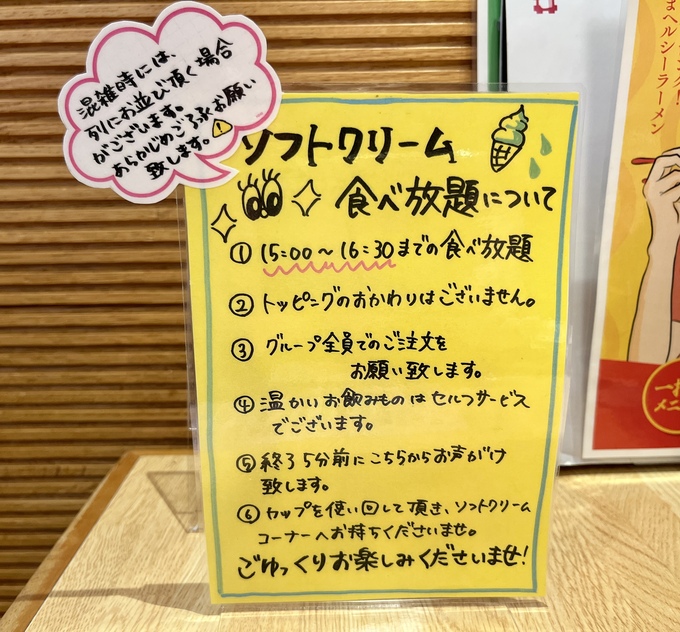 混雑時には、
列にお並び頂く場合
がございます。
あらかじめご了承お願い
致します。
ソフトクリーム
食べ放題について
① 15:00〜16:30までの食べ放題
② トッピングのおかわりはございません。
③ グループ全員でのご注文を
お願い致します。
④ 温かいお飲みものはセルフサービス
でございます。
⑤ 終了5分前にこちらからお声がけ
致します。
⑥ カップを使い回して頂き、ソフトクリーム
コーナーへお持ちくださいませ。
ごゆっくりお楽しみくださいませ!
ヘルシーラーメン